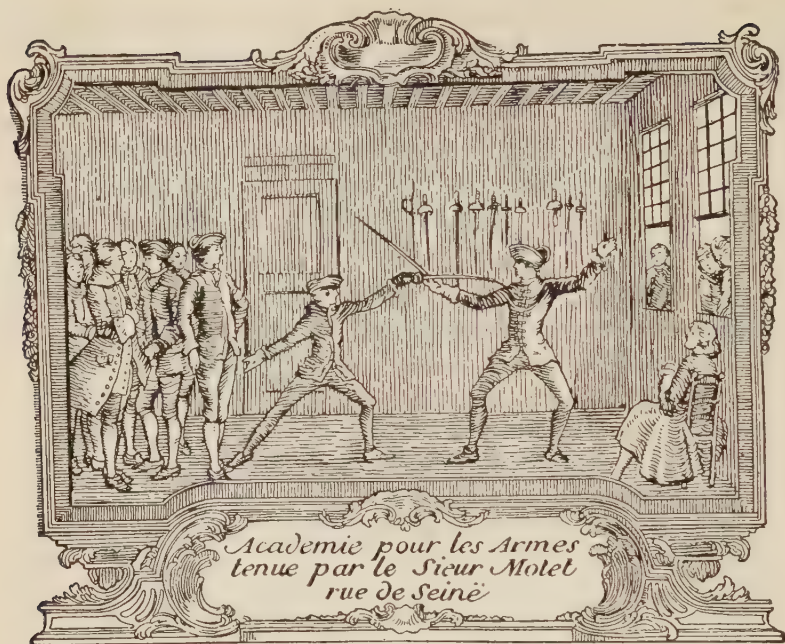 Academie pour les Armes
tenue par le Sieur Molet
rue de Seinë